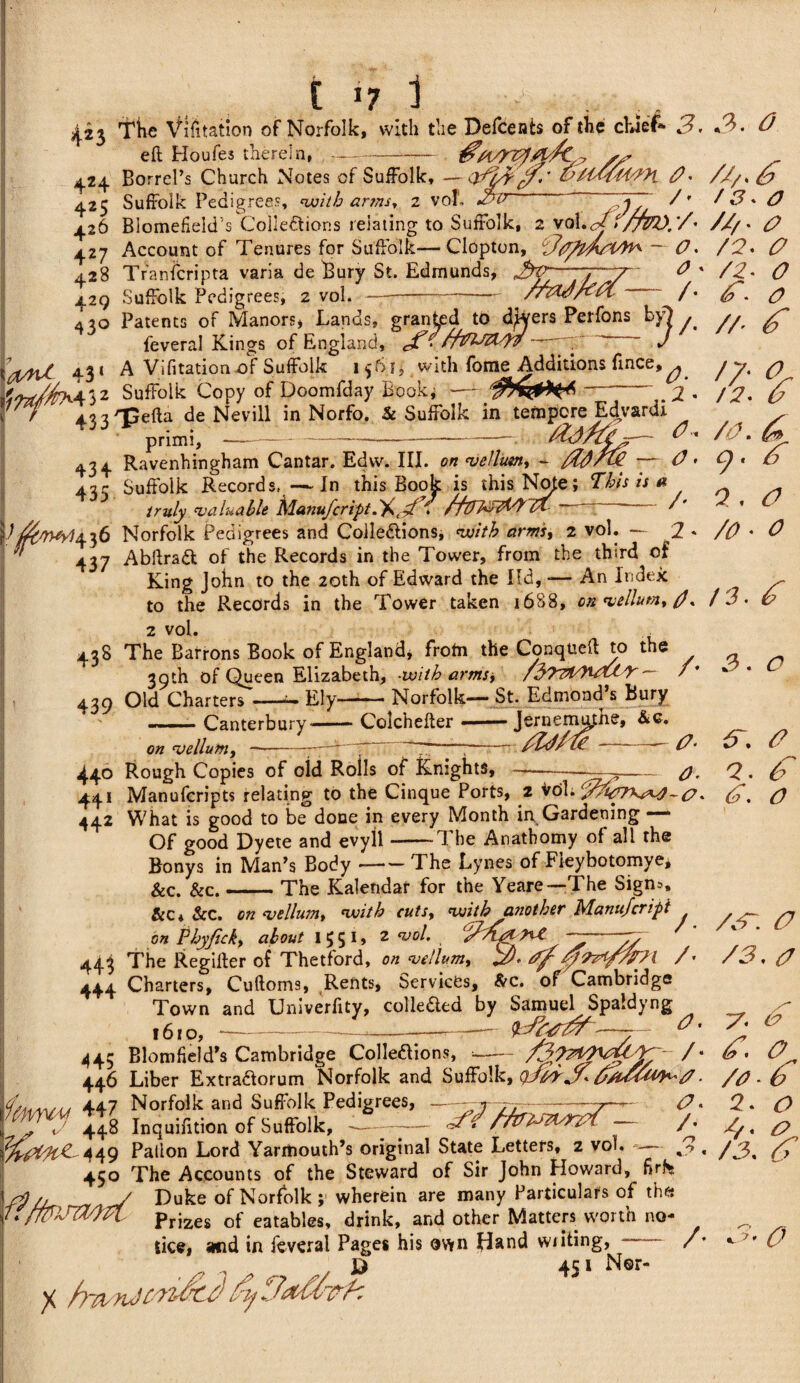 [ 17 ]
423 The Viſitation of Norfolk, with the Deſcents of the chief- 3. 3. 0
eſt Houſes therein,
424 Borrel's Church Notes of Suffolk, — 0. 14. 6
425 Suffolk Pedigrees, with arms, 2 vol. 1. 13. 0
426 Blomefield's Collections relating to Suffolk, 2 vol. 1. 14. 0
427 Account of Tenures for Suffolk— Clopton, — 0. 12. 0
428 Tranſcripta varia de Bury St. Edmunds, Do 0. 12. 0
429 Suffolk Pedigrees, 2 vol. — 1. 6. 0
430 Patents of Manors, Lands, granted to divers Perſons by } 1. 11. 6
ſeveral Kings of England,
431 A Viſitation of Suffolk 1561, with ſome Additions ſince, 0. 17. 0
432 Suffolk Copy of Doomſday Book, — 2. 12. 6
433 Teſta de Nevill in Norfo. & Suffolk in tempore Edvardi
primi, — Astle — 0. 10. 6
434 Ravenhingham Cantar. Edw. III. on vellum, - Astle — 0. 9. 6
435 Suffolk Records. — In this Book is this Note; This is a
truly valuable Manuſcript. X — 1. 2. 0
436 Norfolk Pedigrees and Collections, with arms, 2 vol. — 2. 10. 0
437 Abſtract of the Records in the Tower, from the third of
King John to the 20th of Edward the IId, — An Index
to the Records in the Tower taken 1688, on vellum, 0. 13. 6
2 vol.
438 The Barrons Book of England, from the Conqueſt to the
39th of Queen Elizabeth, with arms, Brander — 1. 3. 0
439 Old Charters —— Ely —— Norfolk— St. Edmond's Bury
—— Canterbury —— Colcheſter —— Jernemuthe, &c.
on vellum, — Astle — 0. 5. 0
440 Rough Copies of old Rolls of Knights, — 0. 2. 6
441 Manuſcripts relating to the Cinque Ports, 2 vol. — 0. 6. 0
442 What is good to be done in every Month in Gardening —
Of good Dyete and evyll —— The Anathomy of all the
Bonys in Man's Body —— The Lynes of Fleybotomye,
&c. &c. —— The Kalendar for the Yeare—The Signs,
&c. &c. on vellum, with cuts, with another Manuſcript
on Phyſick, about 1551, 2 vol. 1. 15. 0
443 The Regiſter of Thetford, on vellum, D. of Grafton 1. 13. 0
444 Charters, Cuſtoms, Rents, Services, &c. of Cambridge
Town and Univerſity, collected by Samuel Spaldyng
1610, — 0. 7. 6
445 Blomfield's Cambridge Collections, — Brander — 1. 6. 0
446 Liber Extractorum Norfolk and Suffolk, 0. 10. 6
447 Norfolk and Suffolk Pedigrees, — 0. 2. 0
448 Inquiſition of Suffolk, — 1. 4. 0
449 Paſton Lord Yarmouth's original State Letters, 2 vol. — 3. 13. 6
450 The Accounts of the Steward of Sir John Howard, firſt
Duke of Norfolk; wherein are many Particulars of the
Prizes of eatables, drink, and other Matters worth no-
tice, and in ſeveral Pages his own Hand writing, — 1. 5. 0
D 451 Nor-
X transcribed by